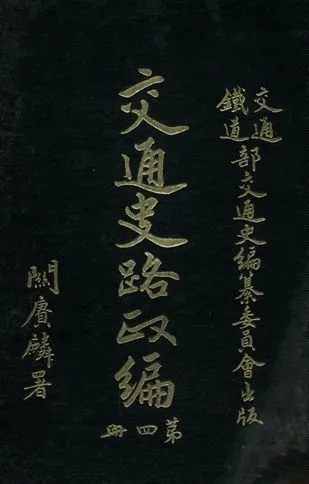 交通
鐵道
部交通史編纂委員會出版
交通史路政編
第四冊
關賡麟署